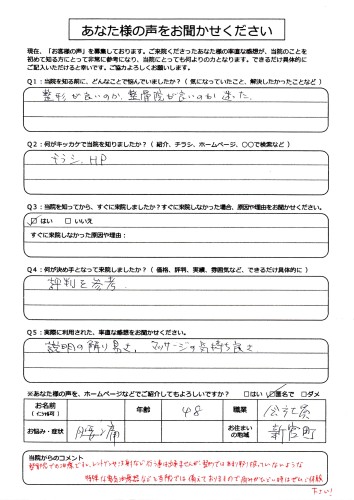 あなた様の声をお聞かせください
現在、「お客様の声」を募集しております。ご来院くださったあなた様の率直な感想が、当院のことを
初めて知る方にとって非常に参考になり、当院にとっても何よりの力となります。できるだけ具体的に
ご記入いただけると幸いです。ご協力よろしくお願いします。
Q1：当院を知る前に、どんなことで悩んでいましたか？（気になっていたこと、解決したかったことなど）
整形が良いのか、整骨院が良いのか 迷った。
Q2：何がキッカケで当院を知りましたか？（ 紹介、チラシ、ホームページ、〇〇で検索など）
チラシ、HP
Q3：当院を知ってから、すぐに来院しましたか？すぐに来院しなかった場合、原因や理由をお聞かせください。
☑はい　□いいえ
すぐに来院しなかった原因や理由：
Q4：何が決め手となって来院しましたか？（ 価格、評判、実績、雰囲気など、できるだけ具体的に ）
評判を参考
Q5：実際に利用された、率直な感想をお聞かせください。
説明の解り易さ、マッサージの気持ち良さ
※あなた様の声を、ホームページなどでご紹介してもよろしいですか？　□はい ☑匿名で □ダメ
お名前
（イニシャル可）
年齢
48
職業
会社員
お悩み・症状
腰痛
お住まい
の地域
新宮町
当院からのコメント
下さい！